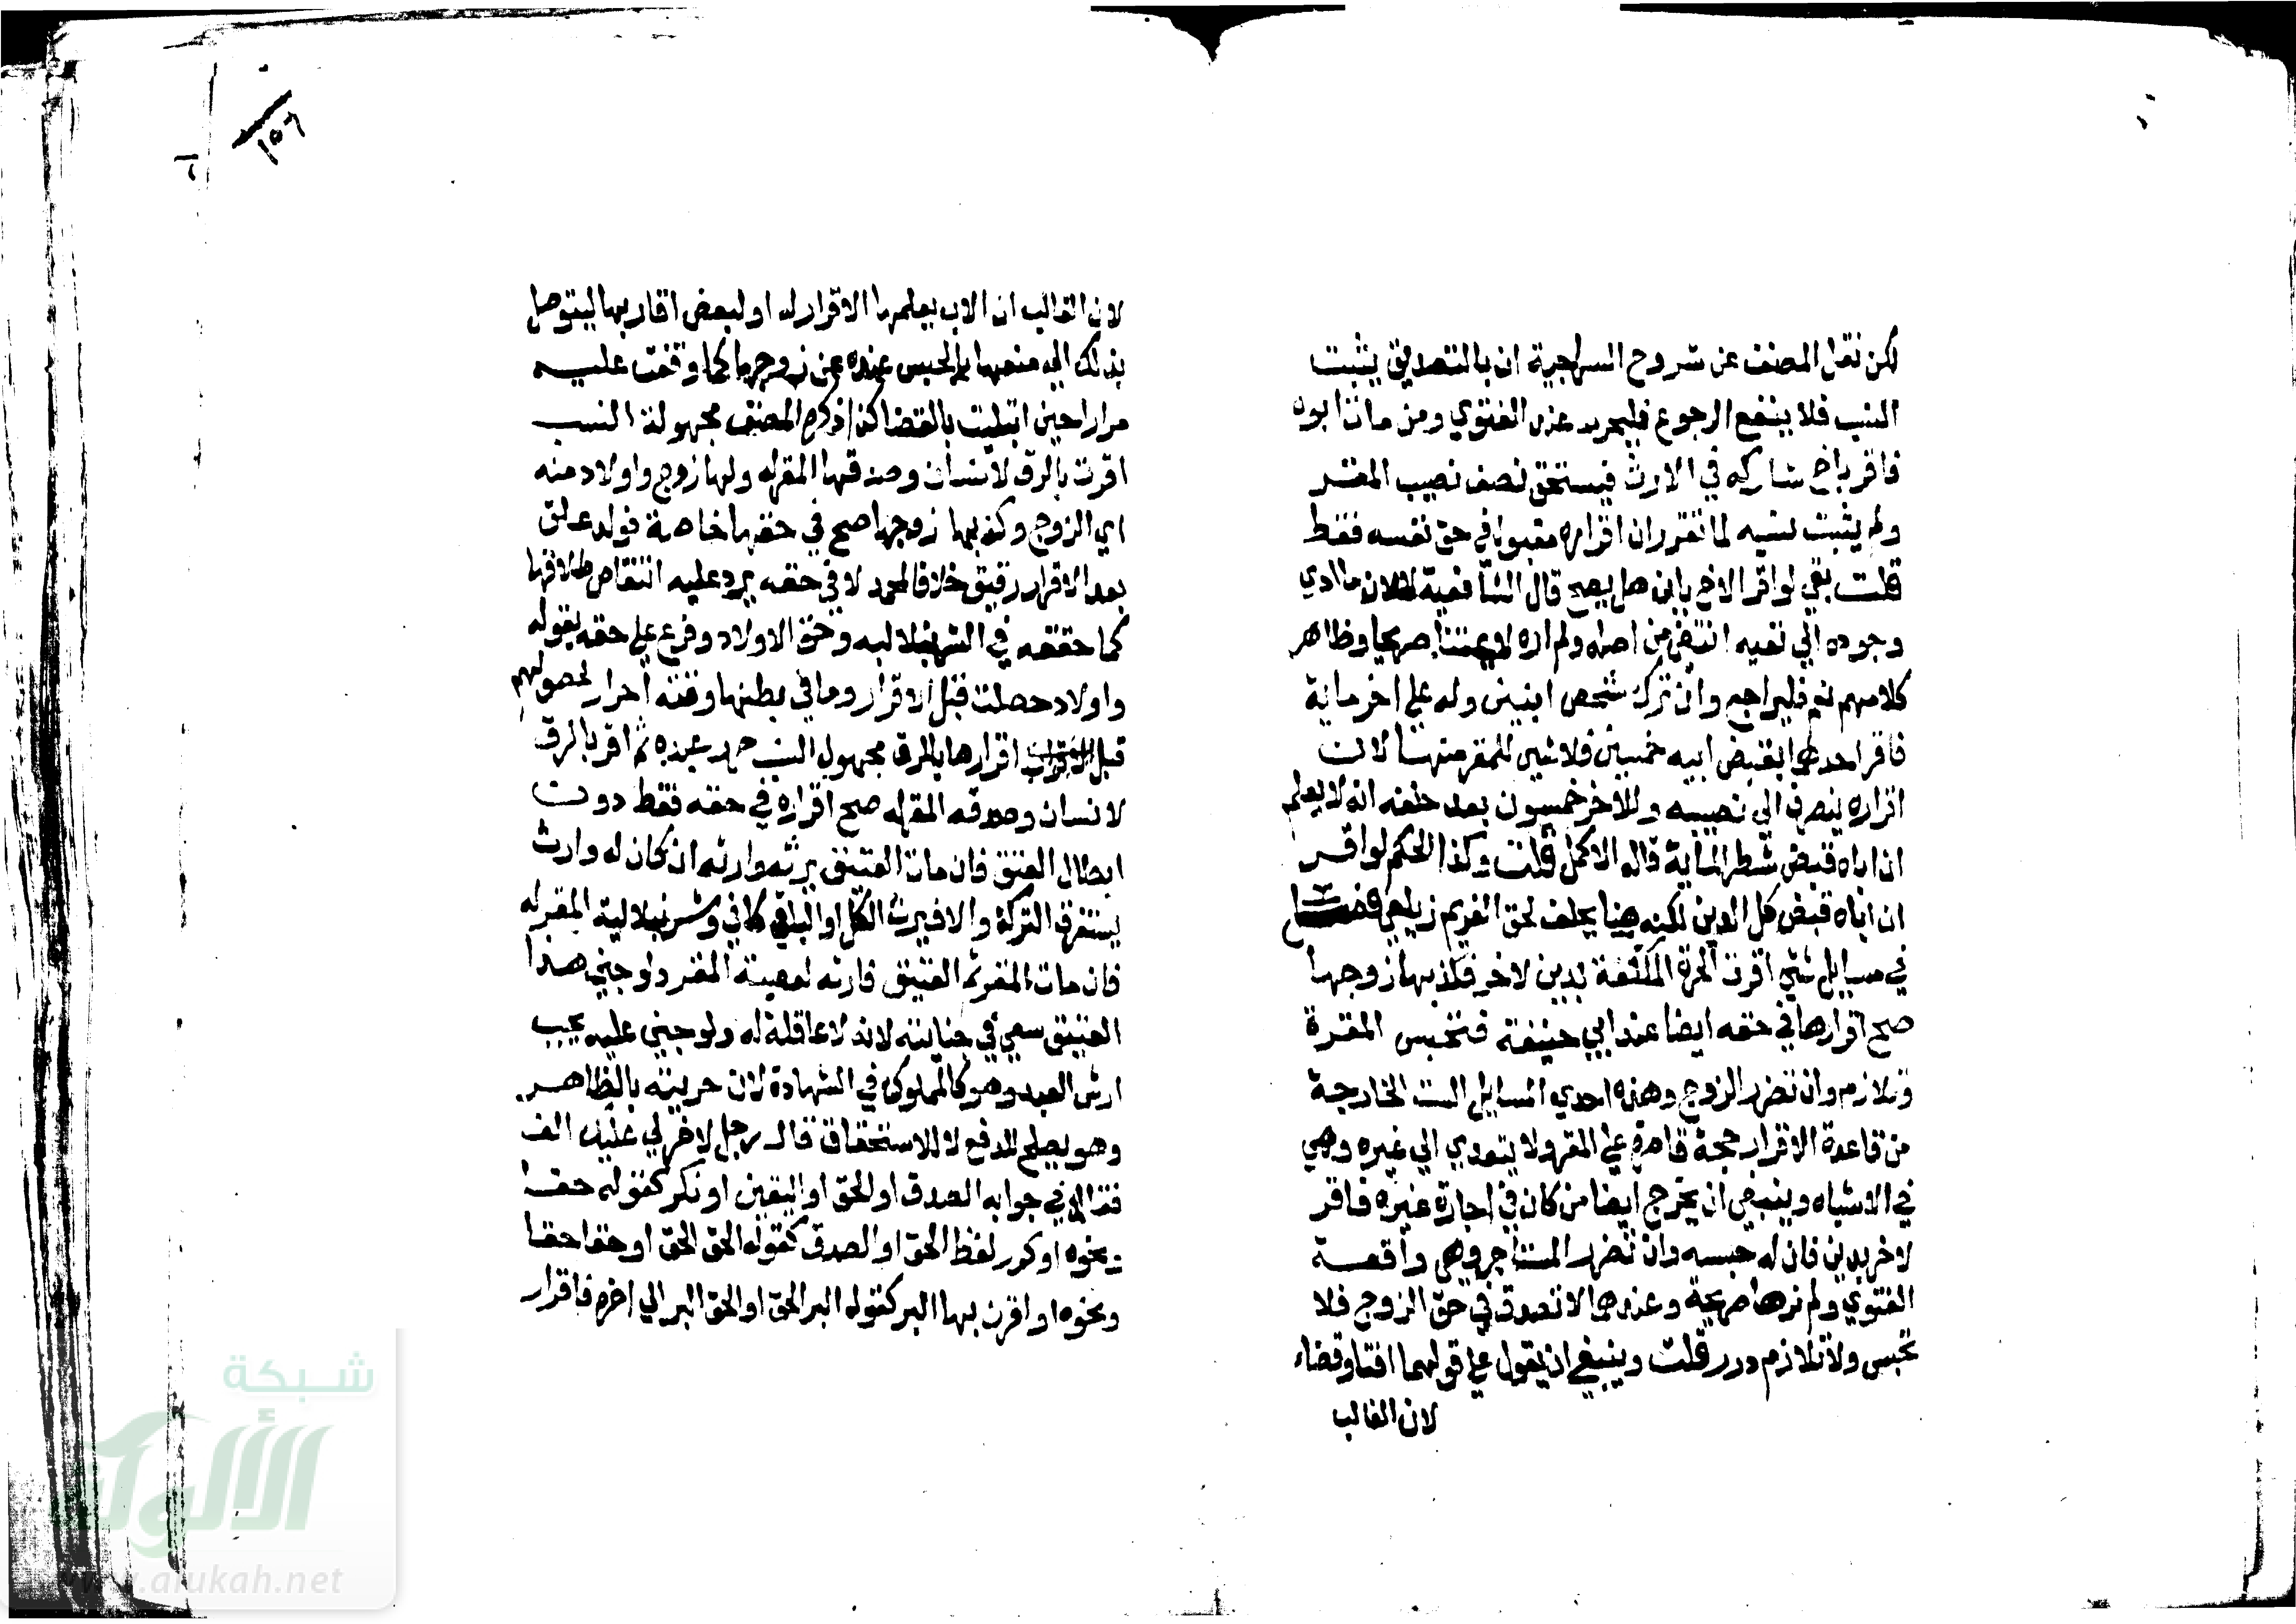 لكن نقل المصنف عن شروح السراجية ان بالتصديق يثبت
النسب فلا ينفع الرجوع فليحرر عند الفتوي ومن مات ابوه
فاقر باخ شاركه في الارث فيستحق نصف نصيب المقر
ولم يثبت نسبه لما تقرر ان اقراره مقبول في حق نفسه فقط
قلت بقي لو اقر الاخ بابن هل يصح قال الشافعية لا لان ما ادي
وجوده الي نفيه انتفي من اصله ولم اره لايمتنا صريحا وظاهر
كلامهم نعم فليراجع وان ترك شخص ابنين وله علي اخر ماية
فاقر احدهما بقبض ابيه خمسين فلا شي للمقر منها لان
اقراره ينصرف الي نصيبه وللاخر خمسون بعد حلفه انه لا يعلم
ان اباه قبض شطر الماية قاله الاكمل قلت وكذا الحكم لو اقر
ان اباه قبض كل الدين لكنه هنا يحلف لحق الغريم زيلعي فصل
في مسايل شتي اقرت الحرة المكلفة بدين لاخر فكذبها زوجها
صح اقرارها في حقه ايضا عند ابي حنيفة فتحبس المقرة
وتلازم وان تضرر الزوج وهذه احدي المسايل الست الخارجة
من قاعدة الاقرار حجة قاصرة علي المقر ولا يتعدي الي غيره وهي
في الاشباه وينبغي ان يخرج ايضا من كان في اجارة غيره فاقر
لاخر بدين فان له حبسه وان تضرر المستاجر وهي واقعة
الفتوي ولم نرها صريحة وعندهما لا تصدق في حق الزوج فلا
تحبس ولا تلازم درر قلت وينبغي ان يعول علي قولهما افتا وقضاء
لان الغالب
١٥٦
لان الغالب ان الاب يعلمها الاقرار له او لبعض اقاربها ليتوصل
بذلك الي منعها بالحبس عنده عن زوجها كما وقفت عليه
مرارا حين ابتليت بالقضا كذا ذكره المصنف مجهولة النسب
اقرت بالرق لانسان وصدقها المقر له ولها زوج واولاد منه
اي الزوج وكذبها زوجها صح في حقها خاصة فولد علق
بعد الاقرار رقيق خلافا لمحمد لا في حقه يرد عليه انتقاص طلاقها
كما حققه في الشرنبلاليه وحق الاولاد وفرع علي حقه بقوله
واولاد حصلت قبل الاقرار وما في بطنها وقته احرار لحصولهم
قبل اقرارها بالرق مجهول النسب حرر عبده ثم اقر بالرق
لانسان وصدقه المقر له صح اقراره في حقه فقط دون
ابطال العتق فان مات العتيق يرثه وارثه ان كان له وارث
يستغرق التركة والا فيرث الكل او الباقي كافي وشرنبلالية المقر له
فان مات المقر ثم العتيق فارثه لعصبة المقر ولو جني هذا
العتيق سعي في جنايته لانه لا عاقلة له ولو جني عليه يجب
ارش العبد وهو كالمملوك في الشهادة لان حريته بالظاهر
وهو يصلح للدفع لا للاستحقاق قال رجل لاخر لي عليك الف
فقال في جوابه الصدق او الحق او اليقين او نكر كقوله حقا
ونحوه او كرر لفظ الحق او الصدق كقوله الحق الحق او حقا حقا
ونحوه او اقرن بها البر كقوله البر الحق او الحق البر الي اخره فاقرار
شبكة
الألوكة
www.alukah.net